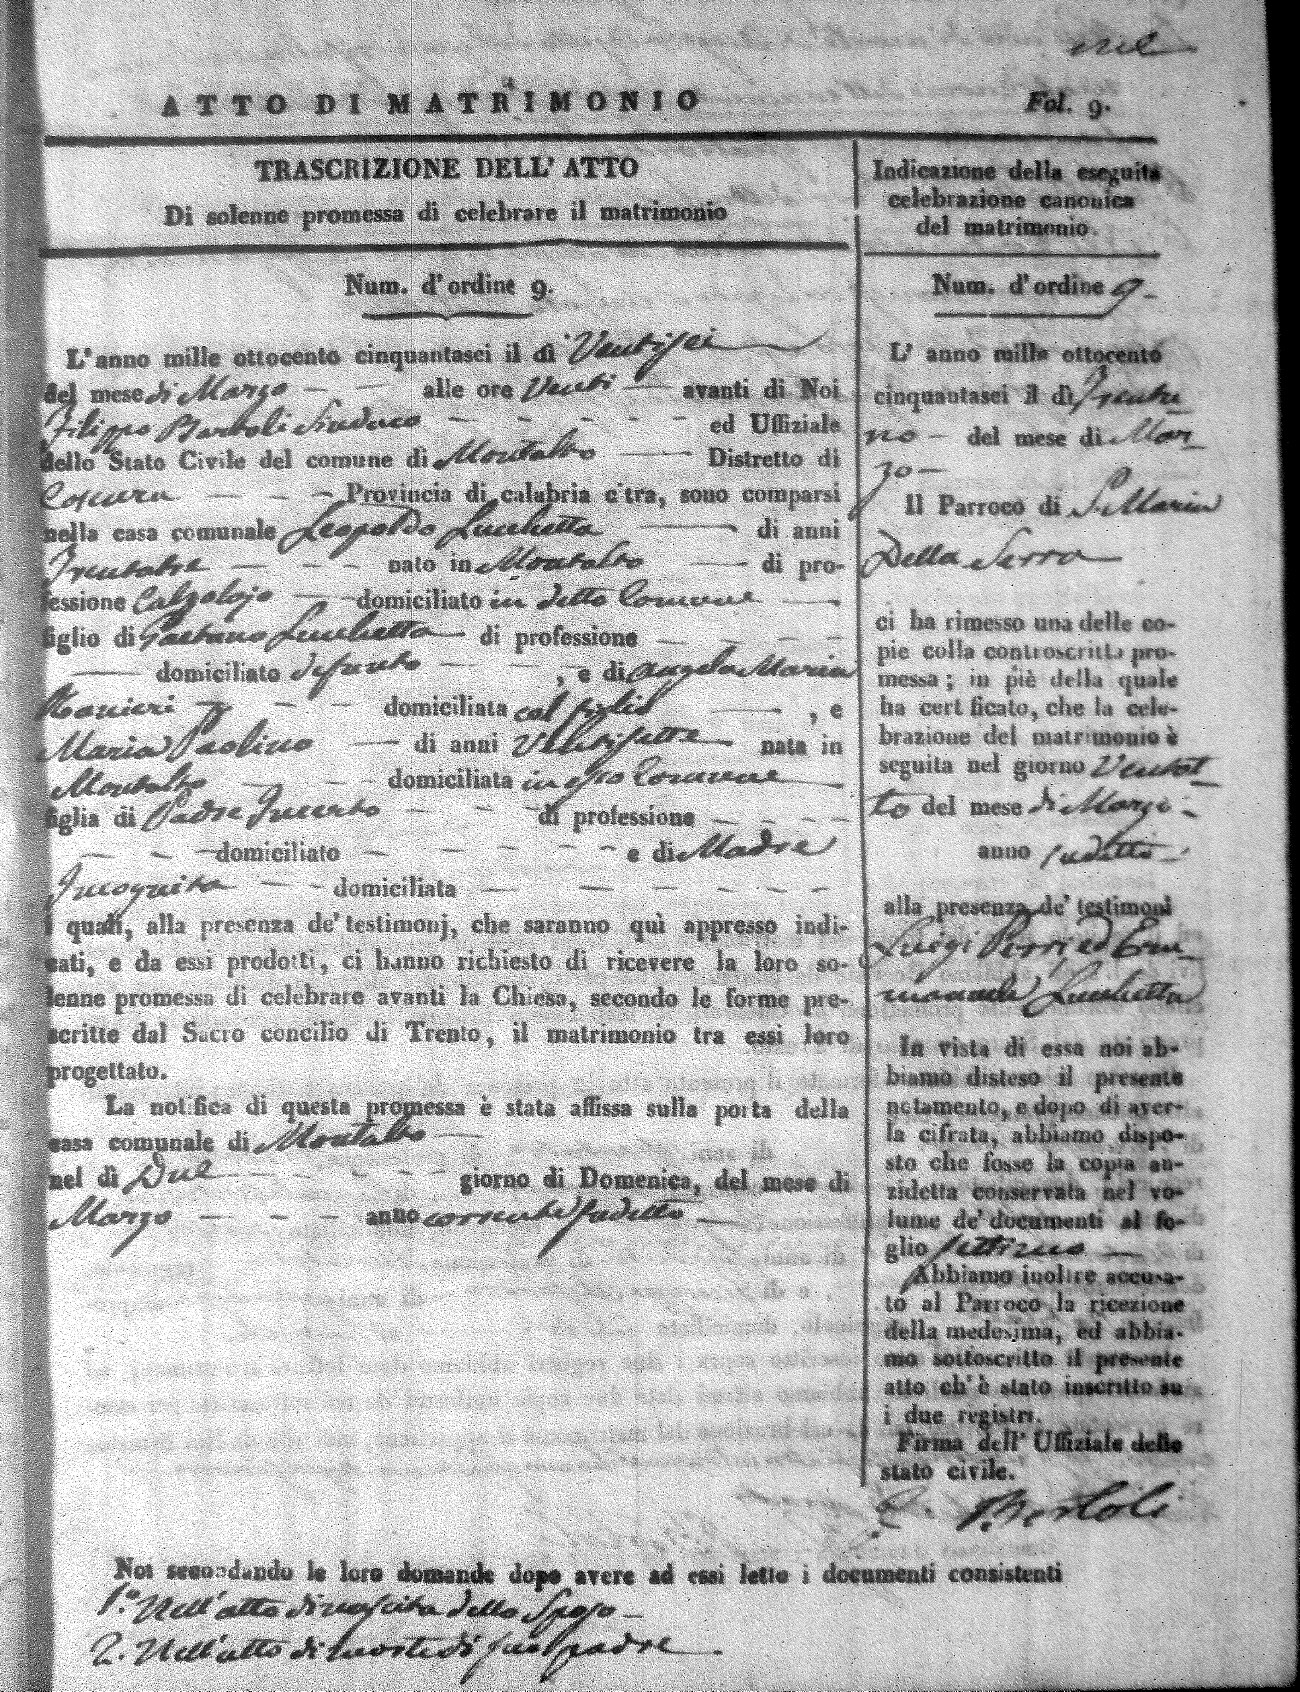 ATTO DI MATRIMONIO
Fol. 9.
TRASCRIZIONE DELL' ATTO
Di solenne promessa di celebrare il matrimonio
Num. d' ordine 9.
L' anno mille ottocento cinquantasei il dì Ventisei
del mese di Marzo alle ore Venti avanti di Noi
Filippo Bartoli Sindaco ed Uffiziale
dello Stato Civile del comune di Montalto Distretto di
Cosenza Provincia di calabria citra, sono comparsi
nella casa comunale Leopoldo Lucchetta di anni
Trentatre nato in Montalto di pro-
fessione Calzolajo domiciliato in detto Comune
figlio di Gaetano Lucchetta di professione
domiciliato defunto , e di Angela Maria
Ranieri domiciliata col figlio , e
Maria Paolino di anni Ventisette nata in
Montalto domiciliata in esso Comune
figlia di Padre Incerto di professione
domiciliato e di Madre
Incognita domiciliata
i quali, alla presenza de' testimonj, che saranno quì appresso indi-
cati, e da essi prodotti, ci hanno richiesto di ricevere la loro so-
lenne promessa di celebrare avanti la Chiesa, secondo le forme pre-
scritte dal Sacro concilio di Trento, il matrimonio tra essi loro
progettato.
La notifica di questa promessa è stata affissa sulla porta della
casa comunale di Montalto
nel dì Due giorno di Domenica, del mese di
Marzo anno corrente sudetto
Indicazione della eseguita
celebrazione canonica
del matrimonio.
Num. d' ordine 9
L' anno mille ottocento
cinquantasei il dì Trentu
no del mese di Mar
zo
Il Parroco di S. Maria
Della Serra
ci ha rimesso una delle co-
pie colla controscritta pro-
messa; in piè della quale
ha certificato, che la cele-
brazione del matrimonio è
seguita nel giorno Ventot
to del mese di Marzo
anno sudetto
alla presenza de' testimoni
Luigi Perri ed Em
manuele Lucchetta
In vista di essa noi ab-
biamo disteso il presente
notamento, e dopo di aver-
la cifrata, abbiamo dispo-
sto che fosse la copia an-
zidetta conservata nel vo-
lume de' documenti al fo-
glio settimo
Abbiamo inoltre accusa-
to al Parroco la ricezione
della medesima, ed abbia-
mo sottoscritto il presente
atto ch' è stato inscritto su
i due registri.
Firma dell' Uffiziale dello
stato civile.
F. Bartoli
Noi secondando le loro domande dopo avere ad essi letto i documenti consistenti
1.° Nell'atto di nascita dello Sposo
2. Nell'atto di morte di suo padre